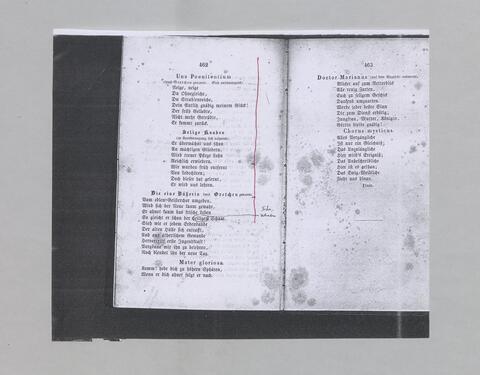 462
Una Poenitentium
Neige, neige
Du Ohnegleiche,
Du Strahlenreiche,
Dein Antlitz gnädig meinem Glück!
Der früh Geliebte,
Nicht mehr Getrübte,
Er kommt zurück.
Selige Knaben
Er überwächst uns schon
An mächtigen Gliedern,
Wird treuer Pflege Lohn
Reichlich erwiedern.
Wir wurden früh entfernt
Von Lebechören;
Doch dieser hat gelernt,
Er wird uns lehren.
Die eine Büßerin sonst Gretchen genannt.
Vom edlen Geisterchor umgeben,
Wird sich der Neue kaum gewahr,
Er ahnet kaum das frische Leben
So gleicht er schon der heiligen Schaar.
Sieh wie er jedem Erdenbande
Der alten Hülle sich entrafft,
Und aus ätherischem Gewande
Hervortritt erste Jugendkraft!
Vergönne mir ihn zu belehren,
Noch blendet ihn der neue Tag.
Mater gloriosa.
Komm! hebe dich zu höhern Sphären,
Wenn er dich ahnet folgt er nach.
463
Doctor Marianus
Blicket auf zum Retterblick
Alle reuig Zarten,
Euch zu seligem Geschick
Dankend umzuarten.
Werde jeder beßre Sinn
Dir zum Dienst erbötig;
Jungfrau, Mutter, Königin,
Göttin bleibe gnädig!
Chorus mysticus.
Alles Vergängliche
Ist nur ein Gleichniß;
Das Unzulängliche
Hier wird's Ereigniß;
Das Unbeschreibliche
Hier ist es gethan;
Das Ewig-Weibliche
Zieht uns hinan.
Finis.